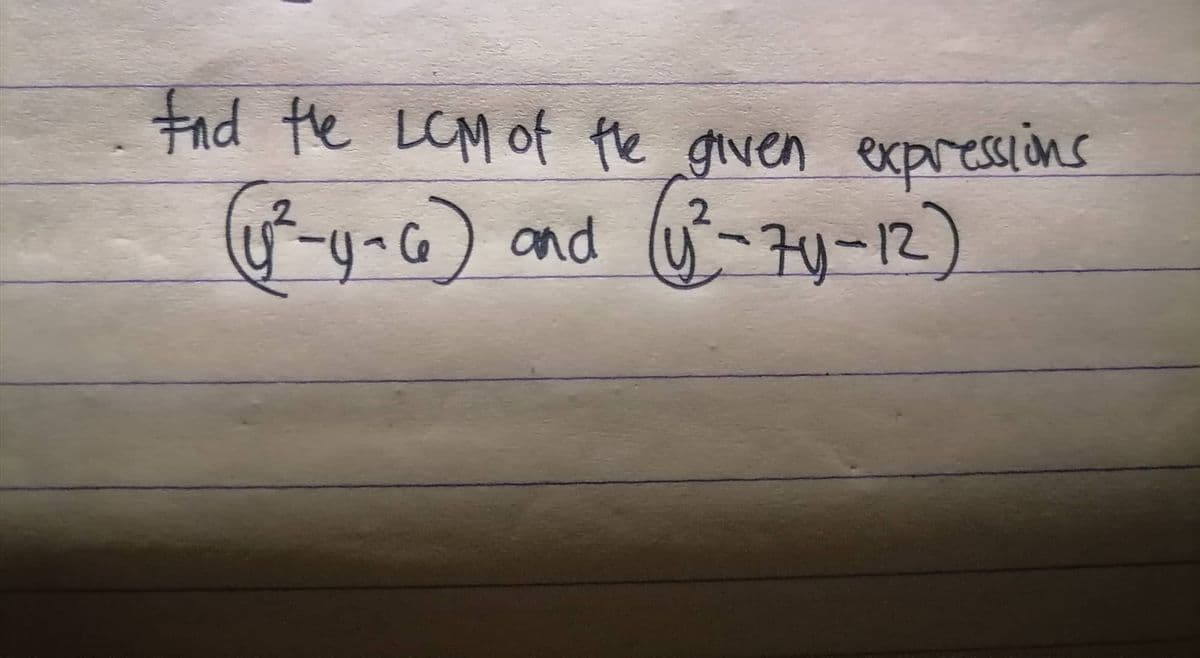 Find the LCM of the given expressions
(y²-y-6) and (y²-7y-12)